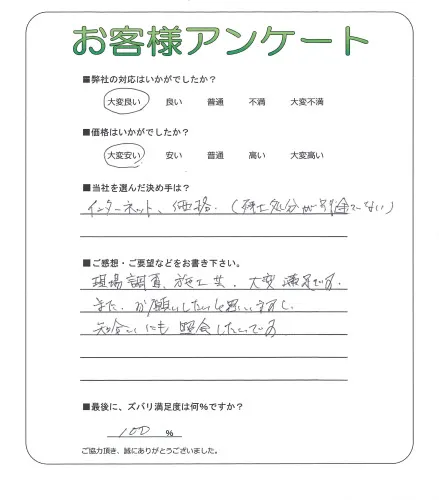 お客様アンケート
■弊社の対応はいかがでしたか?
大変良い 良い 普通 不満 大変不満
■価格はいかがでしたか?
大変安い 安い 普通 高い 大変高い
■当社を選んだ決め手は?
インターネット、価格。(残土処分が別金でない)
■ご感想・ご要望などをお書き下さい。
現場調査、施工共、大変満足です。
また、お願いしたいと思いますし、
知合いにも照会したいです
■最後に、ズバリ満足度は何%ですか?
100 %
ご協力頂き、誠にありがとうございました。